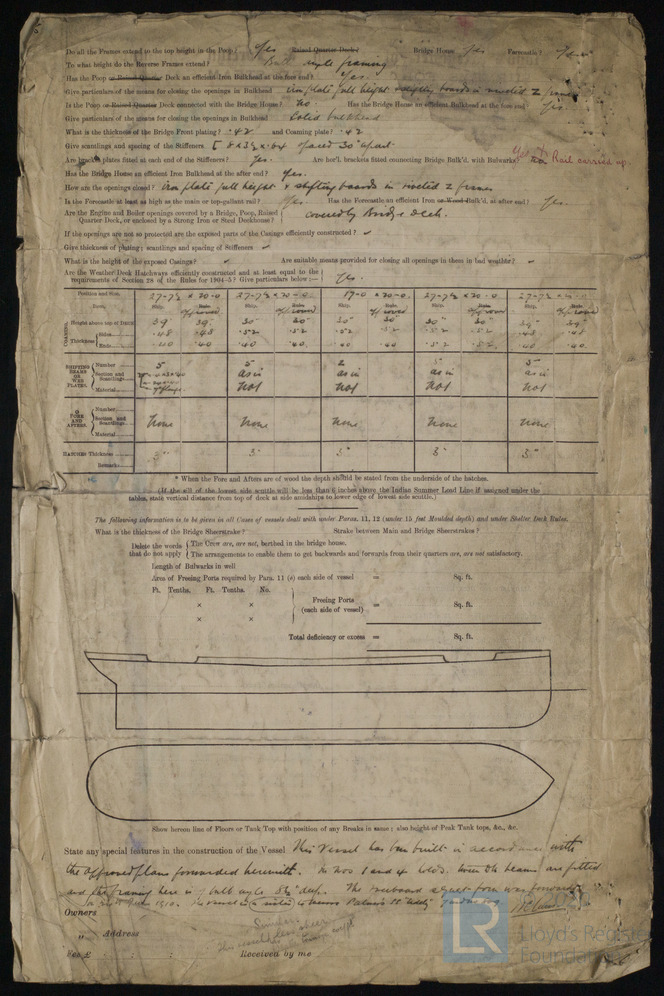 Do all the Frames extend to the top height in the Poop? Yes Raised Quarter Deck? Bridge House Yes Forecastle? Yes
To what height do the Reverse Frames extend? Bulb angle framing
Has the Poop or Raised Quarter Deck an efficient Iron Bulkhead at the fore end? Yes.
Give particulars of the means for closing the openings in Bulkhead Iron plate full height boards in riveted 2 frames
Is the Poop or Raised Quarter Deck connected with the Bridge House? No. Has the Bridge House an efficient Bulkhead at the fore end Yes.
Give particulars of the means for closing the openings in Bulkhead Solid bulkhead
What is the thickness of the Bridge Front plating? .42 and Coaming plate? .42
Give scantlings and spacing of the Stiffeners [ 8 x 3½ x .64 spaced 30" apart.
Are bracket plates fitted at each end of the Stiffeners? Yes. Are hor'l. brackets fitted connecting Bridge Bulk'd. with Bulwarks? Rail carried up
Has the Bridge House an efficient Iron Bulkhead at the after end? Yes.
How are the openings closed? Iron plate full height & shifting boards in riveted 2 frames
Is the Forecastle at least as high as the main or top-gallant rail? Yes. Has the Forecastle an efficient Iron or Wood Bulk'd. at after end? Yes.
Are the Engine and Boiler openings covered by a Bridge, Poop, Raised
Quarter Deck, or enclosed by a Strong Iron or Steel Deckhouse? covered by Bridge Deck.
If the openings are not so protected are the exposed parts of the Casings efficiently constructed? ✓
Give thickness of plating; scantlings and spacing of Stiffeners ✓
What is the height of the exposed Casings? ✓ Are suitable means provided for closing all openings in them in bad weather? ✓
Are the Weather Deck Hatchways efficiently constructed and at least equal to the
requirements of Section 28 of the Rules for 1904-5? Give particulars below:— Yes.
Position and Size. 27-7½ x 20-0 27-7½ x 20-0 27-7½ x 20-0
Item. Ship. Rule. Ship. Rule. Ship. Rule. Ship. Rule. Ship. Rule.
COAMING. Height above top of DECK 39 39 30" 30" 30 30 30" 30" 39"
Thickness Sides .48 .48 .52 .52 .52 .52 .52 .52 .48 .48
Ends .40 .40 .40 .40 .40 .40 .40
SHIFTING BEAMS OR WEB PLATES. Number 5 5 2 5 5
Section and Scantlings as in as in as in as in
Material No 1 No 1 No 1 No 1
* FORE AND AFTERS. Number
Section and Scantlings None None None None None
Material
HATCHES Thickness 3" 3" 3" 3" 3"
Remarks
* When the Fore and Afters are of wood the depth should be stated from the underside of the hatches.
(If the sill of the lowest side scuttle will be less than 6 inches above the Indian Summer Load Line if assigned under the
tables, state vertical distance from top of deck at side amidships to lower edge of lowest side scuttle.)
The following information is to be given in all Cases of vessels dealt with under Paras. 11, 12 (under 15 feet Moulded depth) and under Shelter Deck Rules.
What is the thickness of the Bridge Sheerstrake? Strake between Main and Bridge Sheerstrakes?
Delete the words The Crew are, are not, berthed in the bridge house.
that do not apply The arrangements to enable them to get backwards and forwards from their quarters are, are not satisfactory.
Length of Bulwarks in well
Area of Freeing Ports required by Para. 11 (e) each side of vessel = Sq. ft.
Ft. Tenths. Ft. Tenths. No.
× Freeing Ports = Sq. ft.
× (each side of vessel)
Total deficiency or excess = Sq. ft.
Show hereon line of Floors or Tank Top with position of any Breaks in same; also height of Peak Tank tops, &c., &c.
State any special features in the construction of the Vessel This Vessel has been built in accordance with
the approved plans forwarded herewith. In Nos 1 and 4 holds beams are fitted
and the framing here is bulb angle 8½" deep. The freeboard
Owners
„ Address
Fee £ : : Received by me
LR
Lloyd's Register
Foundation